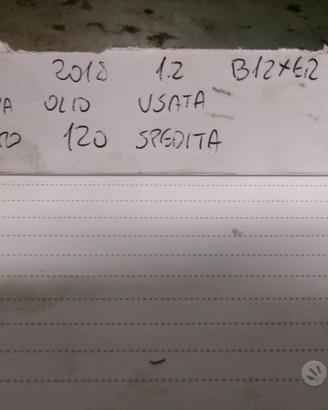 2018 1.2 B12XER
OLIO USATA
120 SPEDITA